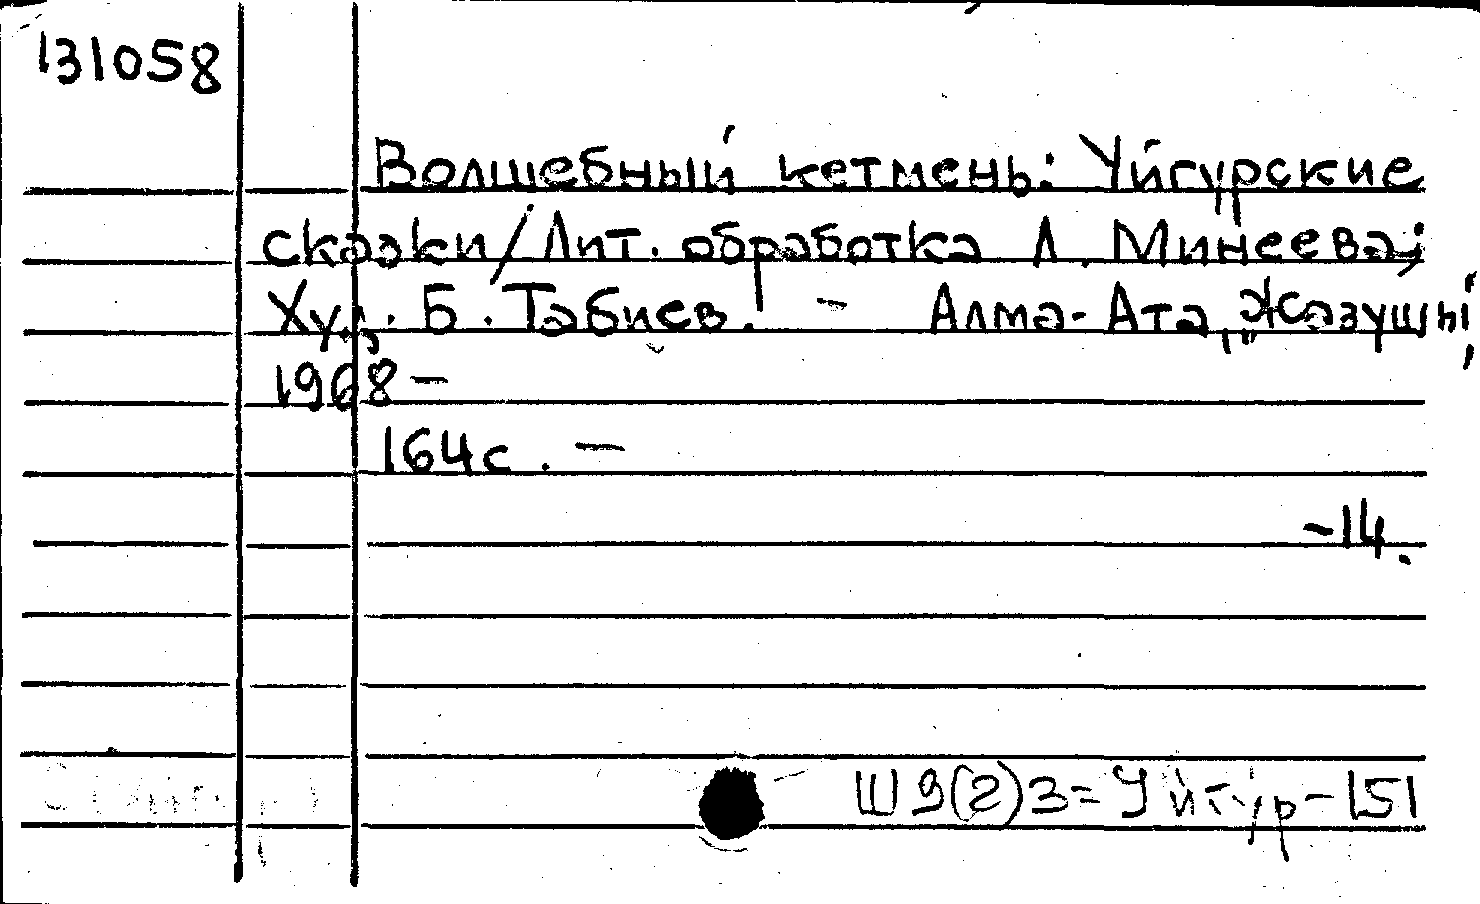 131058
Волшебный кетмень: Уйгурские
сказки/Лит. обработка Л. Минеева;
Худ. Б. Табиев. - Алма-Ата, "Жазушы,
1968 -
164с. -
-14.
Ш9(2)3=Уйгур-151